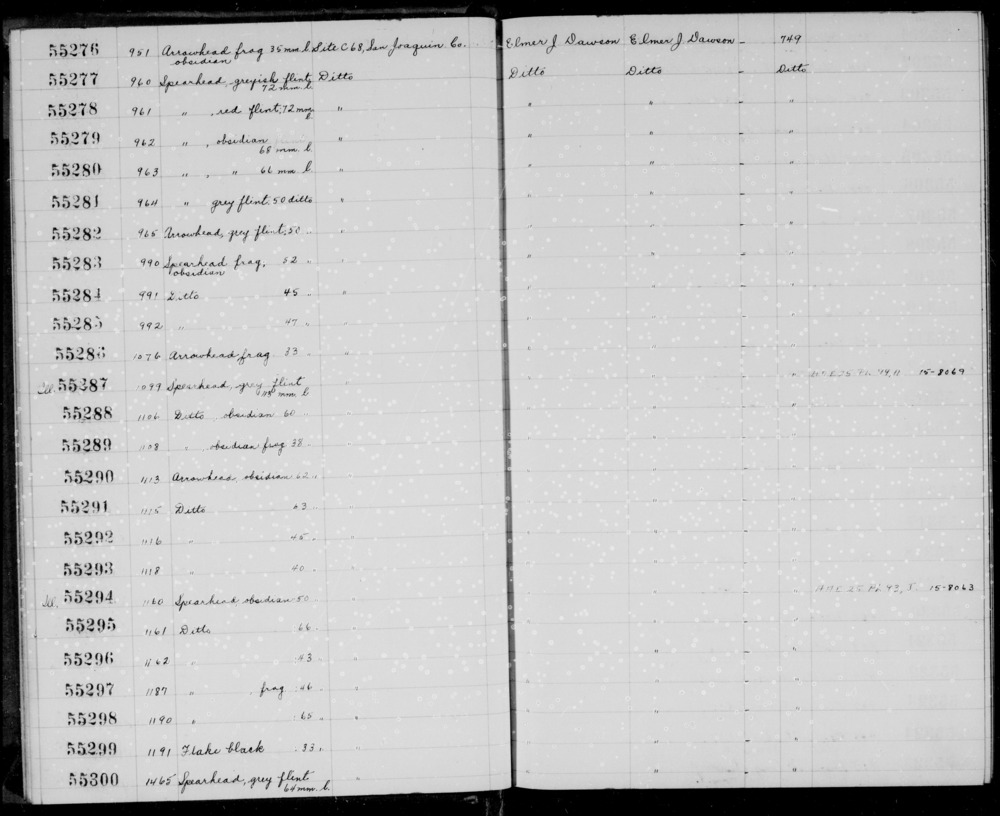 55276 951 Arrowhead frag 35 mm. l. Site C 68, San Joaquin Co. Elmer J Dawson Elmer J Dawson – 749
obsidian
55277 960 Spearhead, greyish flint Ditto Ditto Ditto – Ditto
72 mm. l.
55278 961 " , red flint, 72 mm " " " – "
55279 962 " , obsidian " " " – "
68 mm. l.
55280 963 " , " 66 mm l. " " " – "
55281 964 " grey flint, 50 ditto " " " – "
55282 965 Arrowhead, grey flint, 50 " " " " – "
55283 990 Spearhead frag, 52 " " " " – "
obsidian
55284 991 Ditto 45 " " " " – "
55285 992 " 47 " " " " – "
55286 1076 Arrowhead frag 33 " " " – "
Ill. 55287 1099 Spearhead, grey flint " " " – " 15-8069
mm. l.
55288 1106 Ditto obsidian 60 " " " " – "
55289 1108 " obsidian frag 38 " " " – "
55290 1113 Arrowhead, obsidian 62 " " " " – "
55291 1115 Ditto 63 " " " – "
55292 1116 " 45 " " " – "
55293 1118 " 40 " " " – "
Ill. 55294 1160 Spearhead obsidian 50 " " " – " 15-8063
55295 1161 Ditto 66 " " " – "
55296 1162 " 43 " " " – "
55297 1187 " frag 46 " " " – "
55298 1190 " 65 " " " " – "
55299 1191 Flake black 33 " " " " – "
55300 1465 Spearhead, grey flint " " " – "
64 mm. l.